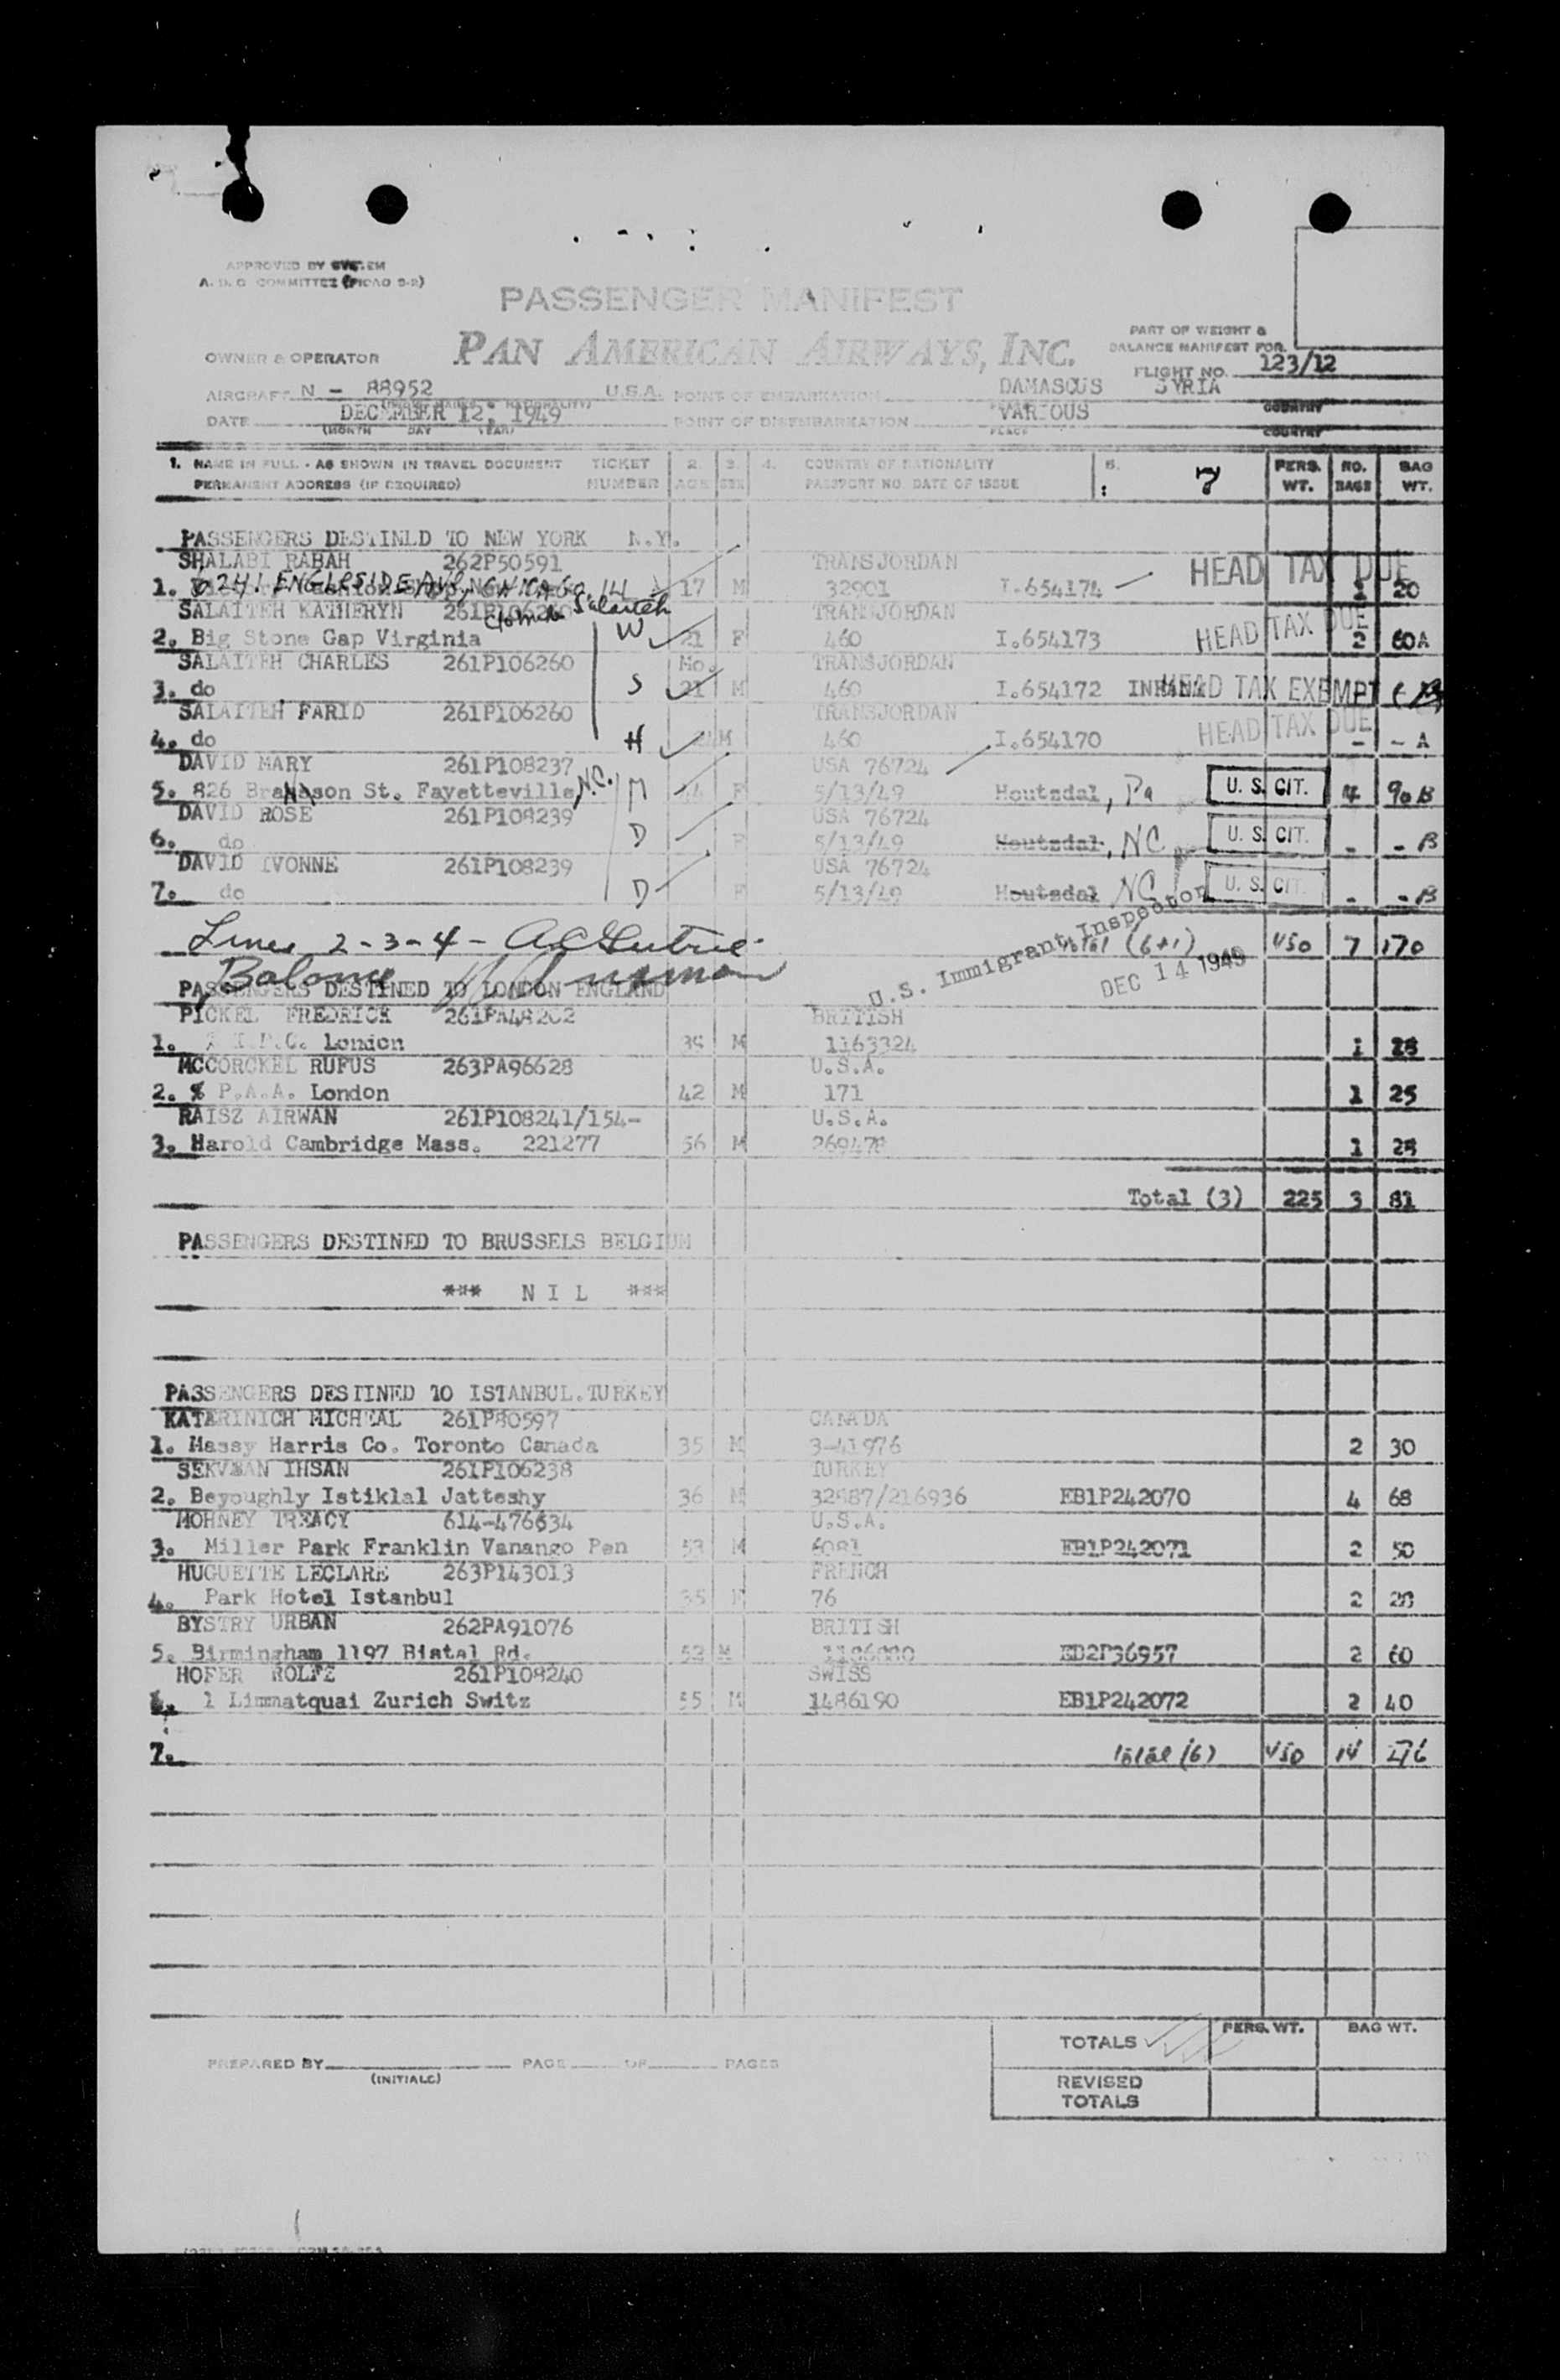 APPROVED BY SYSTEM
A. D. C COMMITTEE (PICAO S-2)
PASSENGER MANIFEST
PAN AMERICAN AIRWAYS, INC.
PART OF WEIGHT &
BALANCE MANIFEST FOR
OWNER & OPERATOR
FLIGHT NO. 123/12
AIRCRAFT N - 88952 U.S.A. POINT OF EMBARKATION DAMASCUS SYRIA
COUNTRY
DATE DECEMBER 12, 1949 POINT OF DISEMBARKATION VARIOUS
(MONTH DAY YEAR) PLACE COUNTRY
1. NAME IN FULL - AS SHOWN IN TRAVEL DOCUMENT TICKET 2. 3. 4. COUNTRY OF NATIONALITY 5. 7 PERS. NO. BAG
PERMANENT ADDRESS (IF REQUIRED) NUMBER AGE SEX PASSPORT NO. DATE OF ISSUE WT. BAGS WT.
PASSENGERS DESTINED TO NEW YORK N.Y.
SHALABI RABAH 262P50591 TRANSJORDAN HEAD TAX DUE
1. 6241 ENGLESIDE AVE, CHICAGO, ILL 17 M 32901 I.654174 1 20
SALAITEH KATHERYN 261P106260 Salaiteh TRANSJORDAN HEAD TAX DUE
2. Big Stone Gap Virginia W 21 F 460 I.654173 2 60A
SALAITEH CHARLES 261P106260 Mo. TRANSJORDAN
3. do S 21 M 460 I.654172 INFANT HEAD TAX EXEMPT
SALAITEH FARID 261P106260 TRANSJORDAN HEAD TAX DUE
4. do H M 460 I.654170 - - A
DAVID MARY 261P108237 USA 76724
5. 826 Branson St. Fayetteville, N.C. M 44 F 5/13/49 Houtzdal, Pa U. S. CIT. 4 90 B
DAVID ROSE 261P108239 USA 76724
6. do D F 5/13/49 Houtzdal, NC U. S. CIT. - - B
DAVID IVONNE 261P108239 USA 76724
7. do D F 5/13/49 Houtsdal NC U. S. CIT. - - B
Lines 2-3-4 -
Total (6+1) 450 7 170
U.S. Immigrant Inspector
DEC 14 1949
PASSENGERS DESTINED TO LONDON ENGLAND
PICKEL FREDRICK 261PA48202 BRITISH
1. London 39 M 1163324 1 28
MCCORCKEL RUFUS 263PA96628 U.S.A.
2. % P.A.A. London 42 M 171 1 25
RAISZ AIRWAN 261P108241/154- U.S.A.
3. Harold Cambridge Mass. 221277 56 M 269478 1 28
Total (3) 225 3 81
PASSENGERS DESTINED TO BRUSSELS BELGIUM
*** N I L ***
PASSENGERS DESTINED TO ISTANBUL.TURKEY
KATERINICH MICHEAL 261P80597 CANADA
1. Massy Harris Co. Toronto Canada 35 M 3-41976 2 30
SEKVMAN IHSAN 261P106238 TURKEY
2. Beyoughly Istiklal Jatteshy 36 M 32987/216936 EB1P242070 4 68
MOHNEY TREACY 614-476634 U.S.A.
3. Miller Park Franklin Vanango Pen 53 M 6081 EB1P242071 2 50
HUGUETTE LECLARE 263P143013 FRENCH
4. Park Hotel Istanbul 35 F 76 2 28
BYSTRY URBAN 262PA91076 BRITISH
5. Birmingham 1197 Bistal Rd. 52 M ED2P36957 2 60
HOFER ROLFE 261P108240 SWISS
6. 1 Limmatquai Zurich Switz 55 M 1486190 EB1P242072 2 40
7. Total (6) 450 14 276
TOTALS PERS. WT. BAG WT.
PREPARED BY PAGE OF PAGES
(INITIALS)
REVISED
TOTALS